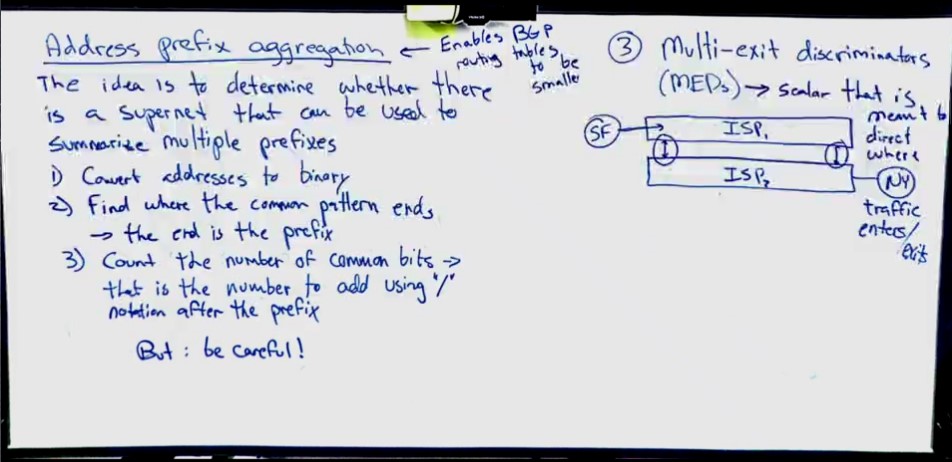 Address prefix aggregation ← Enables BGP
routing tables
to be
smaller
The idea is to determine whether there
is a supernet that can be used to
summarize multiple prefixes
1) Convert addresses to binary
2) Find where the common pattern ends
→ the end is the prefix
3) Count the number of common bits →
that is the number to add using "/"
notation after the prefix
But : be careful!
③ Multi-exit discriminators
(MEDs) → scalar that is
meant to
direct
where
traffic
enters/
exits
SF
ISP1
I
I
ISP2
NY